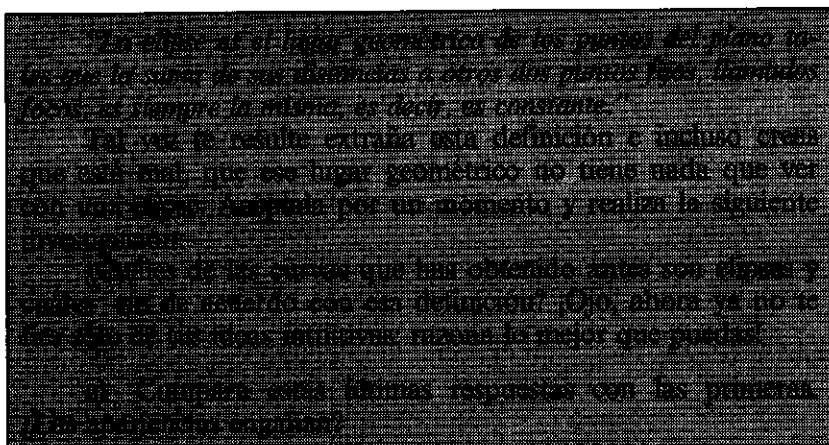 "La elipse es el lugar geométrico de los puntos del plano ta-
les que la suma de sus distancias a otros dos puntos fijos, llamados
focos, es siempre la misma, es decir, es constante."
Tal vez te resulte extraña esta definición e incluso creas
que está mal, que ese lugar geométrico no tiene nada que ver
con una elipse. Acéptala por un momento y realiza la siguiente
¿Cuáles de las curvas que has obtenido antes son elipses y
cuáles no de acuerdo con esa definición? ¡Ojo, ahora ya no te
razona lo mejor que puedas!
Compara estas últimas respuestas con las primeras.